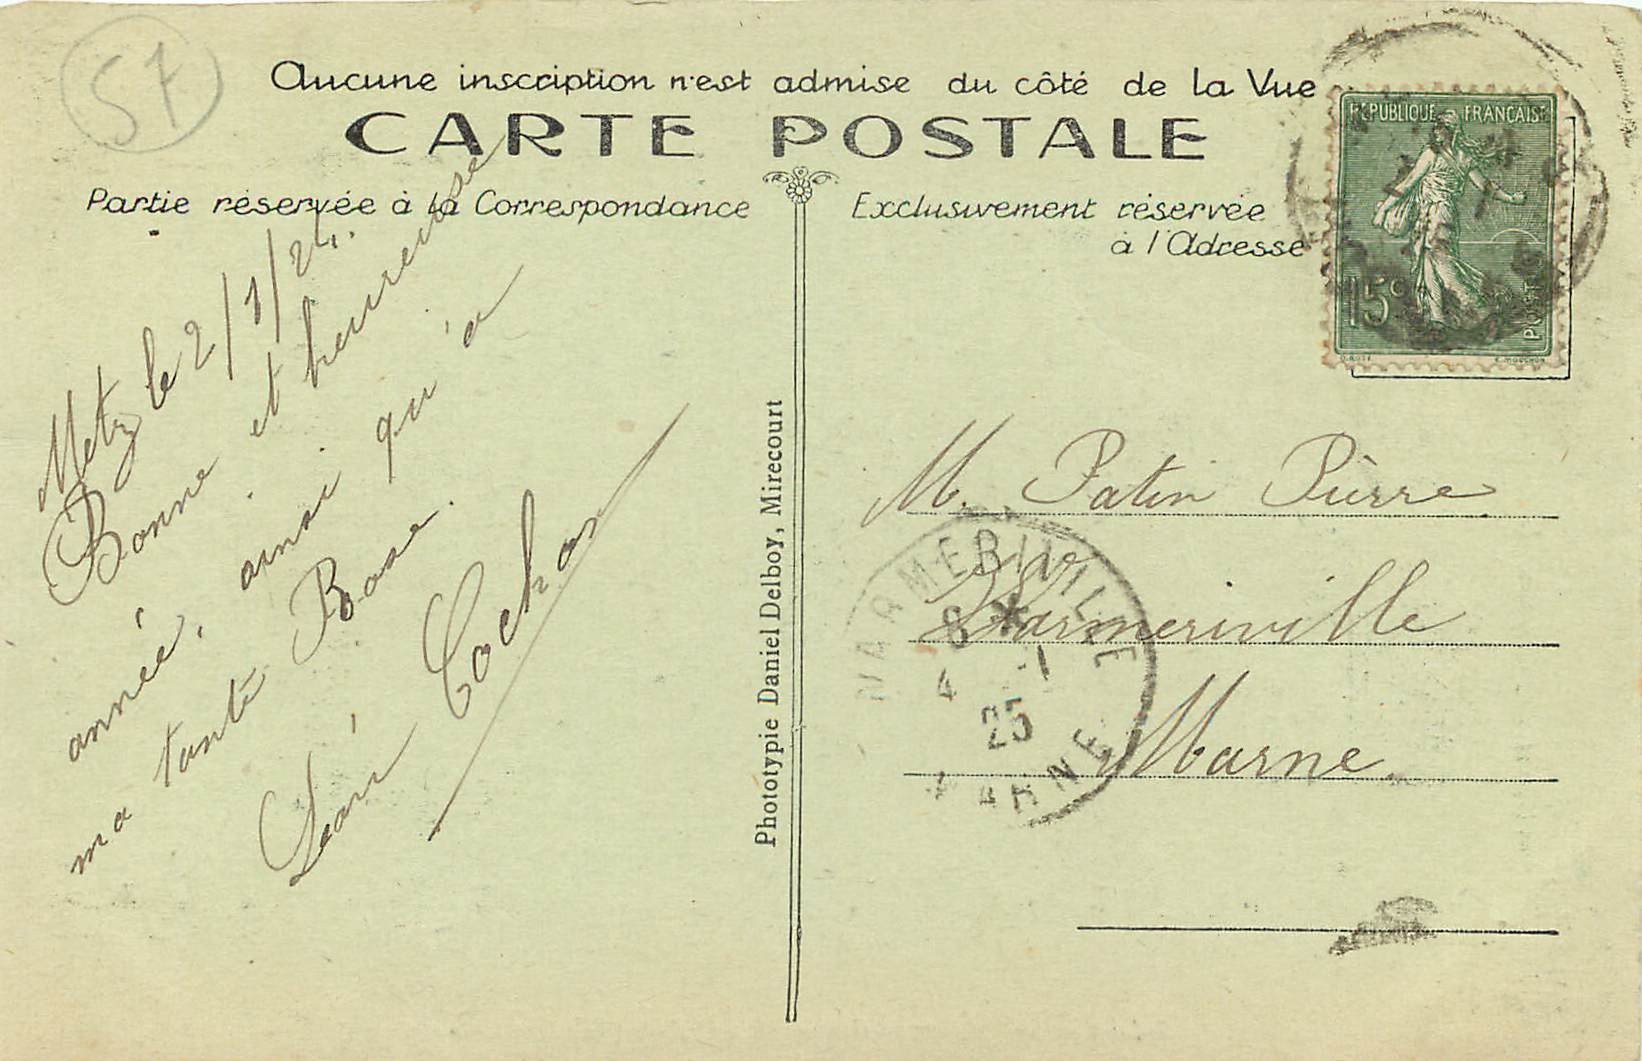 57
Aucune inscription n'est admise du côté de la Vue
CARTE POSTALE
Partie réservée à la Correspondance
Exclusivement réservée
à l'Adresse
REPUBLIQUE FRANÇAISE
15c
POSTES
O. ROTY
E. MOUCHON
Metz le 2/1/24.
Bonne et heureuse
année, ainsi qu'à
ma tante Rose.
Cochon
Phototypie Daniel Delboy, Mirecourt
M. Patin Pierre
Warmeriville
Marne
WARMERIVILLE
8 *
4 -1
25
MARNE